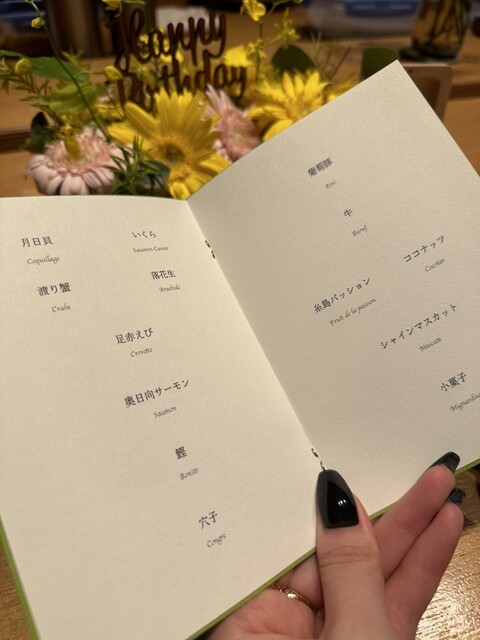 Happy
Birthday
月日貝
Coquillage
いくら
Saumon Caviar
渡り蟹
Crabe
落花生
Arachide
足赤えび
Crevette
奥日向サーモン
Saumon
鰹
Bonito
穴子
Congre
葡萄豚
牛
Bœuf
ココナッツ
Cocotier
糸島パッション
Fruit de la passion
シャインマスカット
Muscats
小菓子